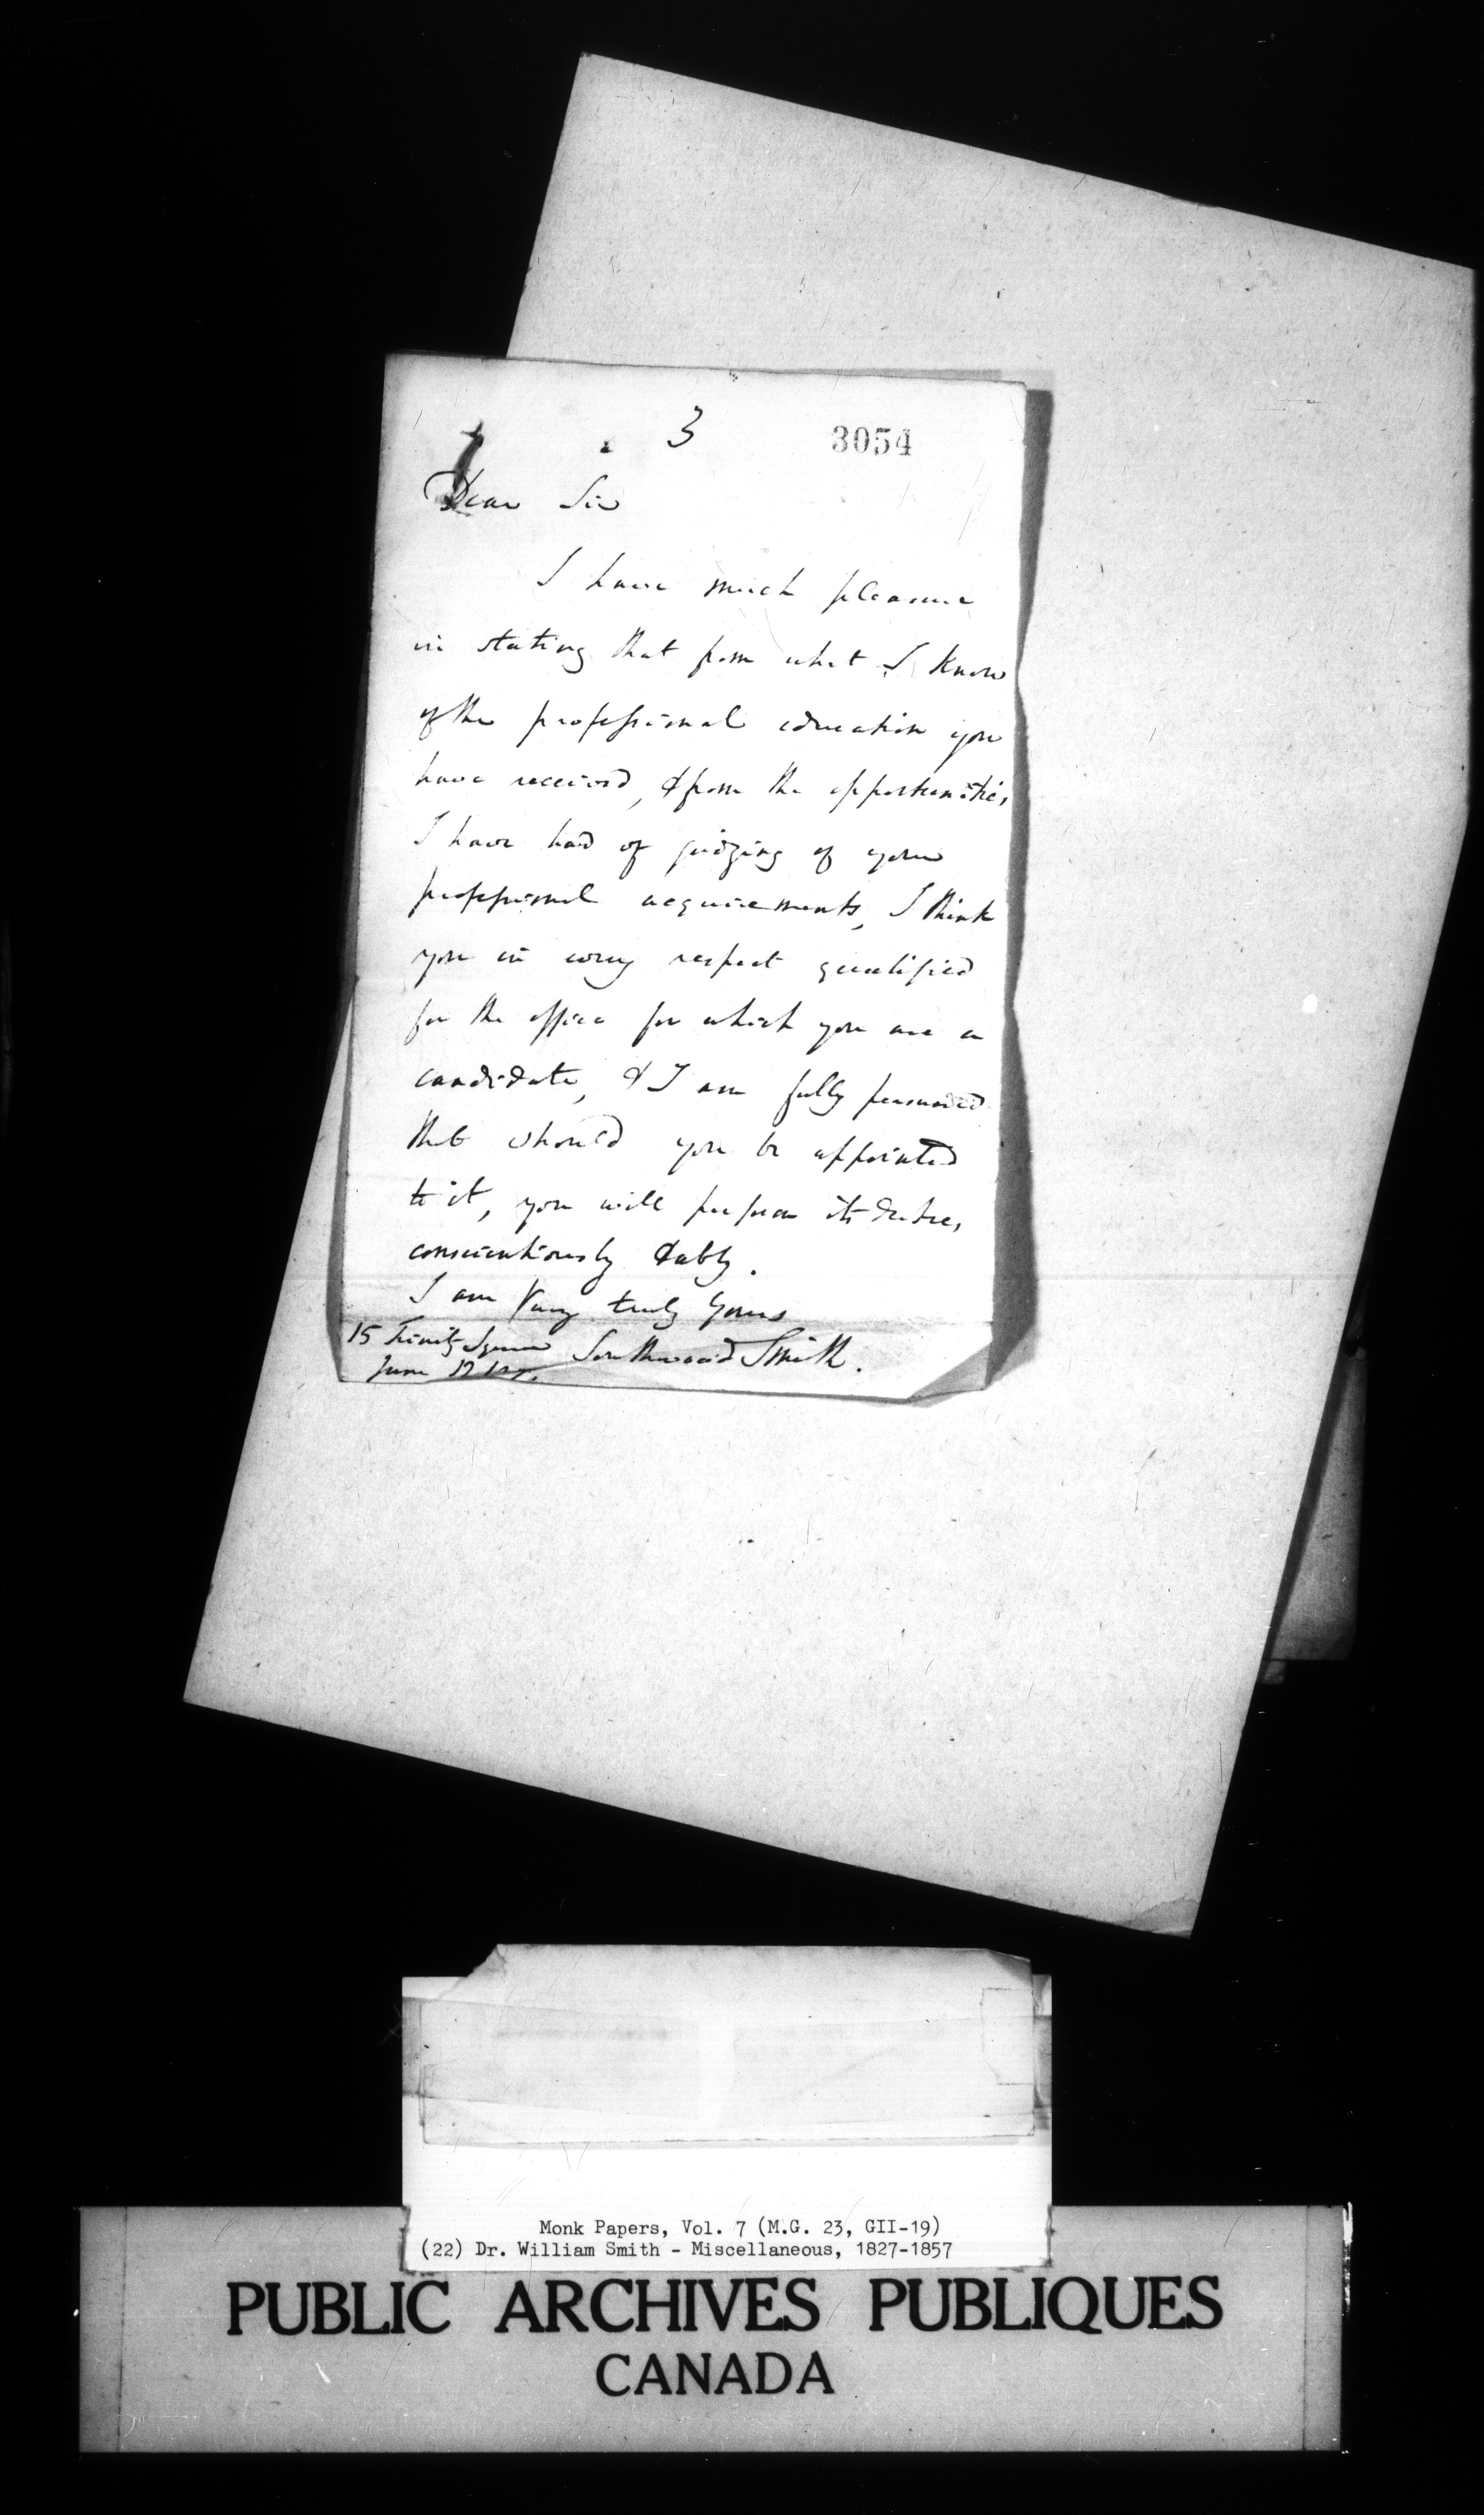 3
3054
Dear Sir
I have much pleasure
in stating that from what I know
of the professional education you
have received, & from the opportunities
I have had of judging of your
professional acquirements, I think
you in every respect qualified
for the office for which you are a
candidate, & I am fully persuaded
that should you be appointed
to it, you will perform its duties
conscientiously & ably.
I am very truly yours
15 Trinity Square Southwood Smith.
June
Monk Papers, Vol. 7 (M.G. 23, GII-19)
(22) Dr. William Smith - Miscellaneous, 1827-1857
PUBLIC ARCHIVES PUBLIQUES
CANADA